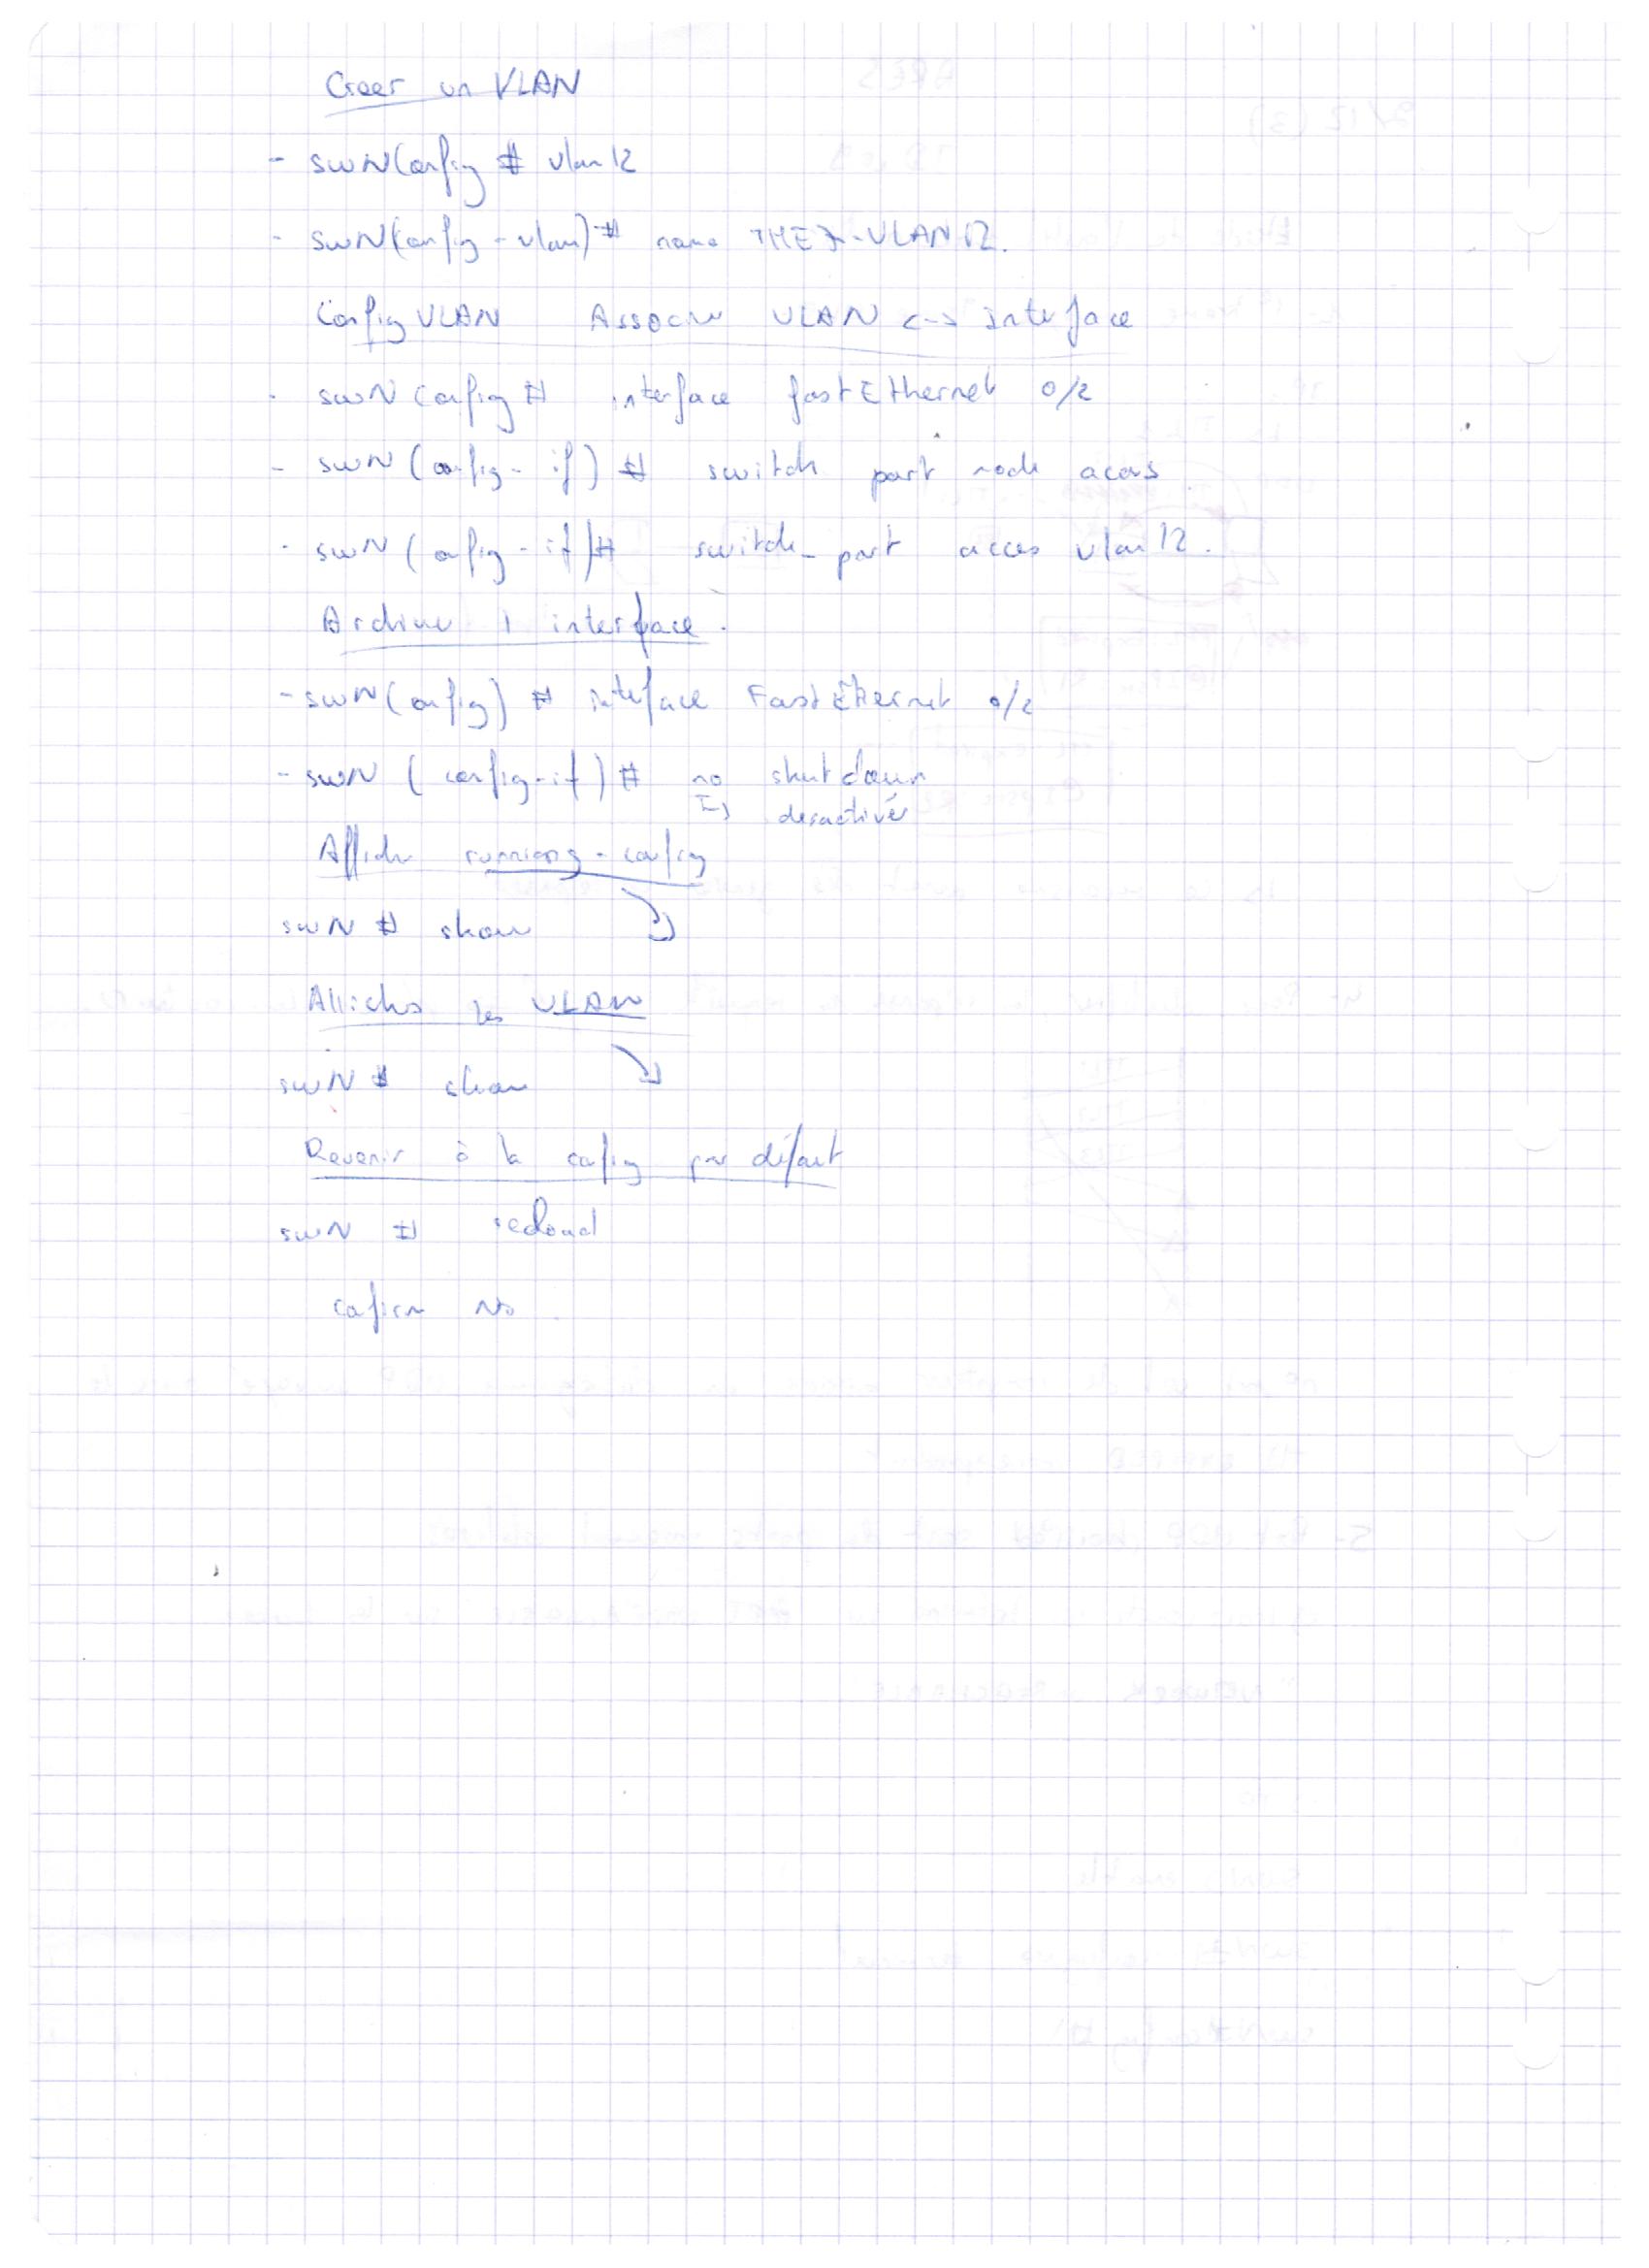 Creer un VLAN
- swN Config # vlan 12
- swN(config-vlan)# name THE7-VLAN12.
Config VLAN Associer VLAN <-> interface
- swN config # interface fastEthernet 0/2
- swN (config-if) # switch port mode acces
- swN (config-if)# switch-port acces vlan 12.
interface.
- swN(config) # interface FastEthernet 0/2
- swN (config-if) # no shutdown
↳ desactiver
Afficher running-config
swN # show
Afficher les VLAN
swN # show
Revenir à la config par défaut
swN # reload
confirm No